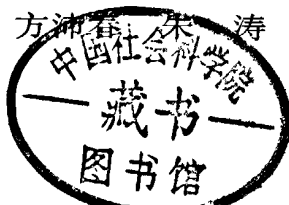 方沛春 朱涛
中国社会科学院
藏书
图书馆